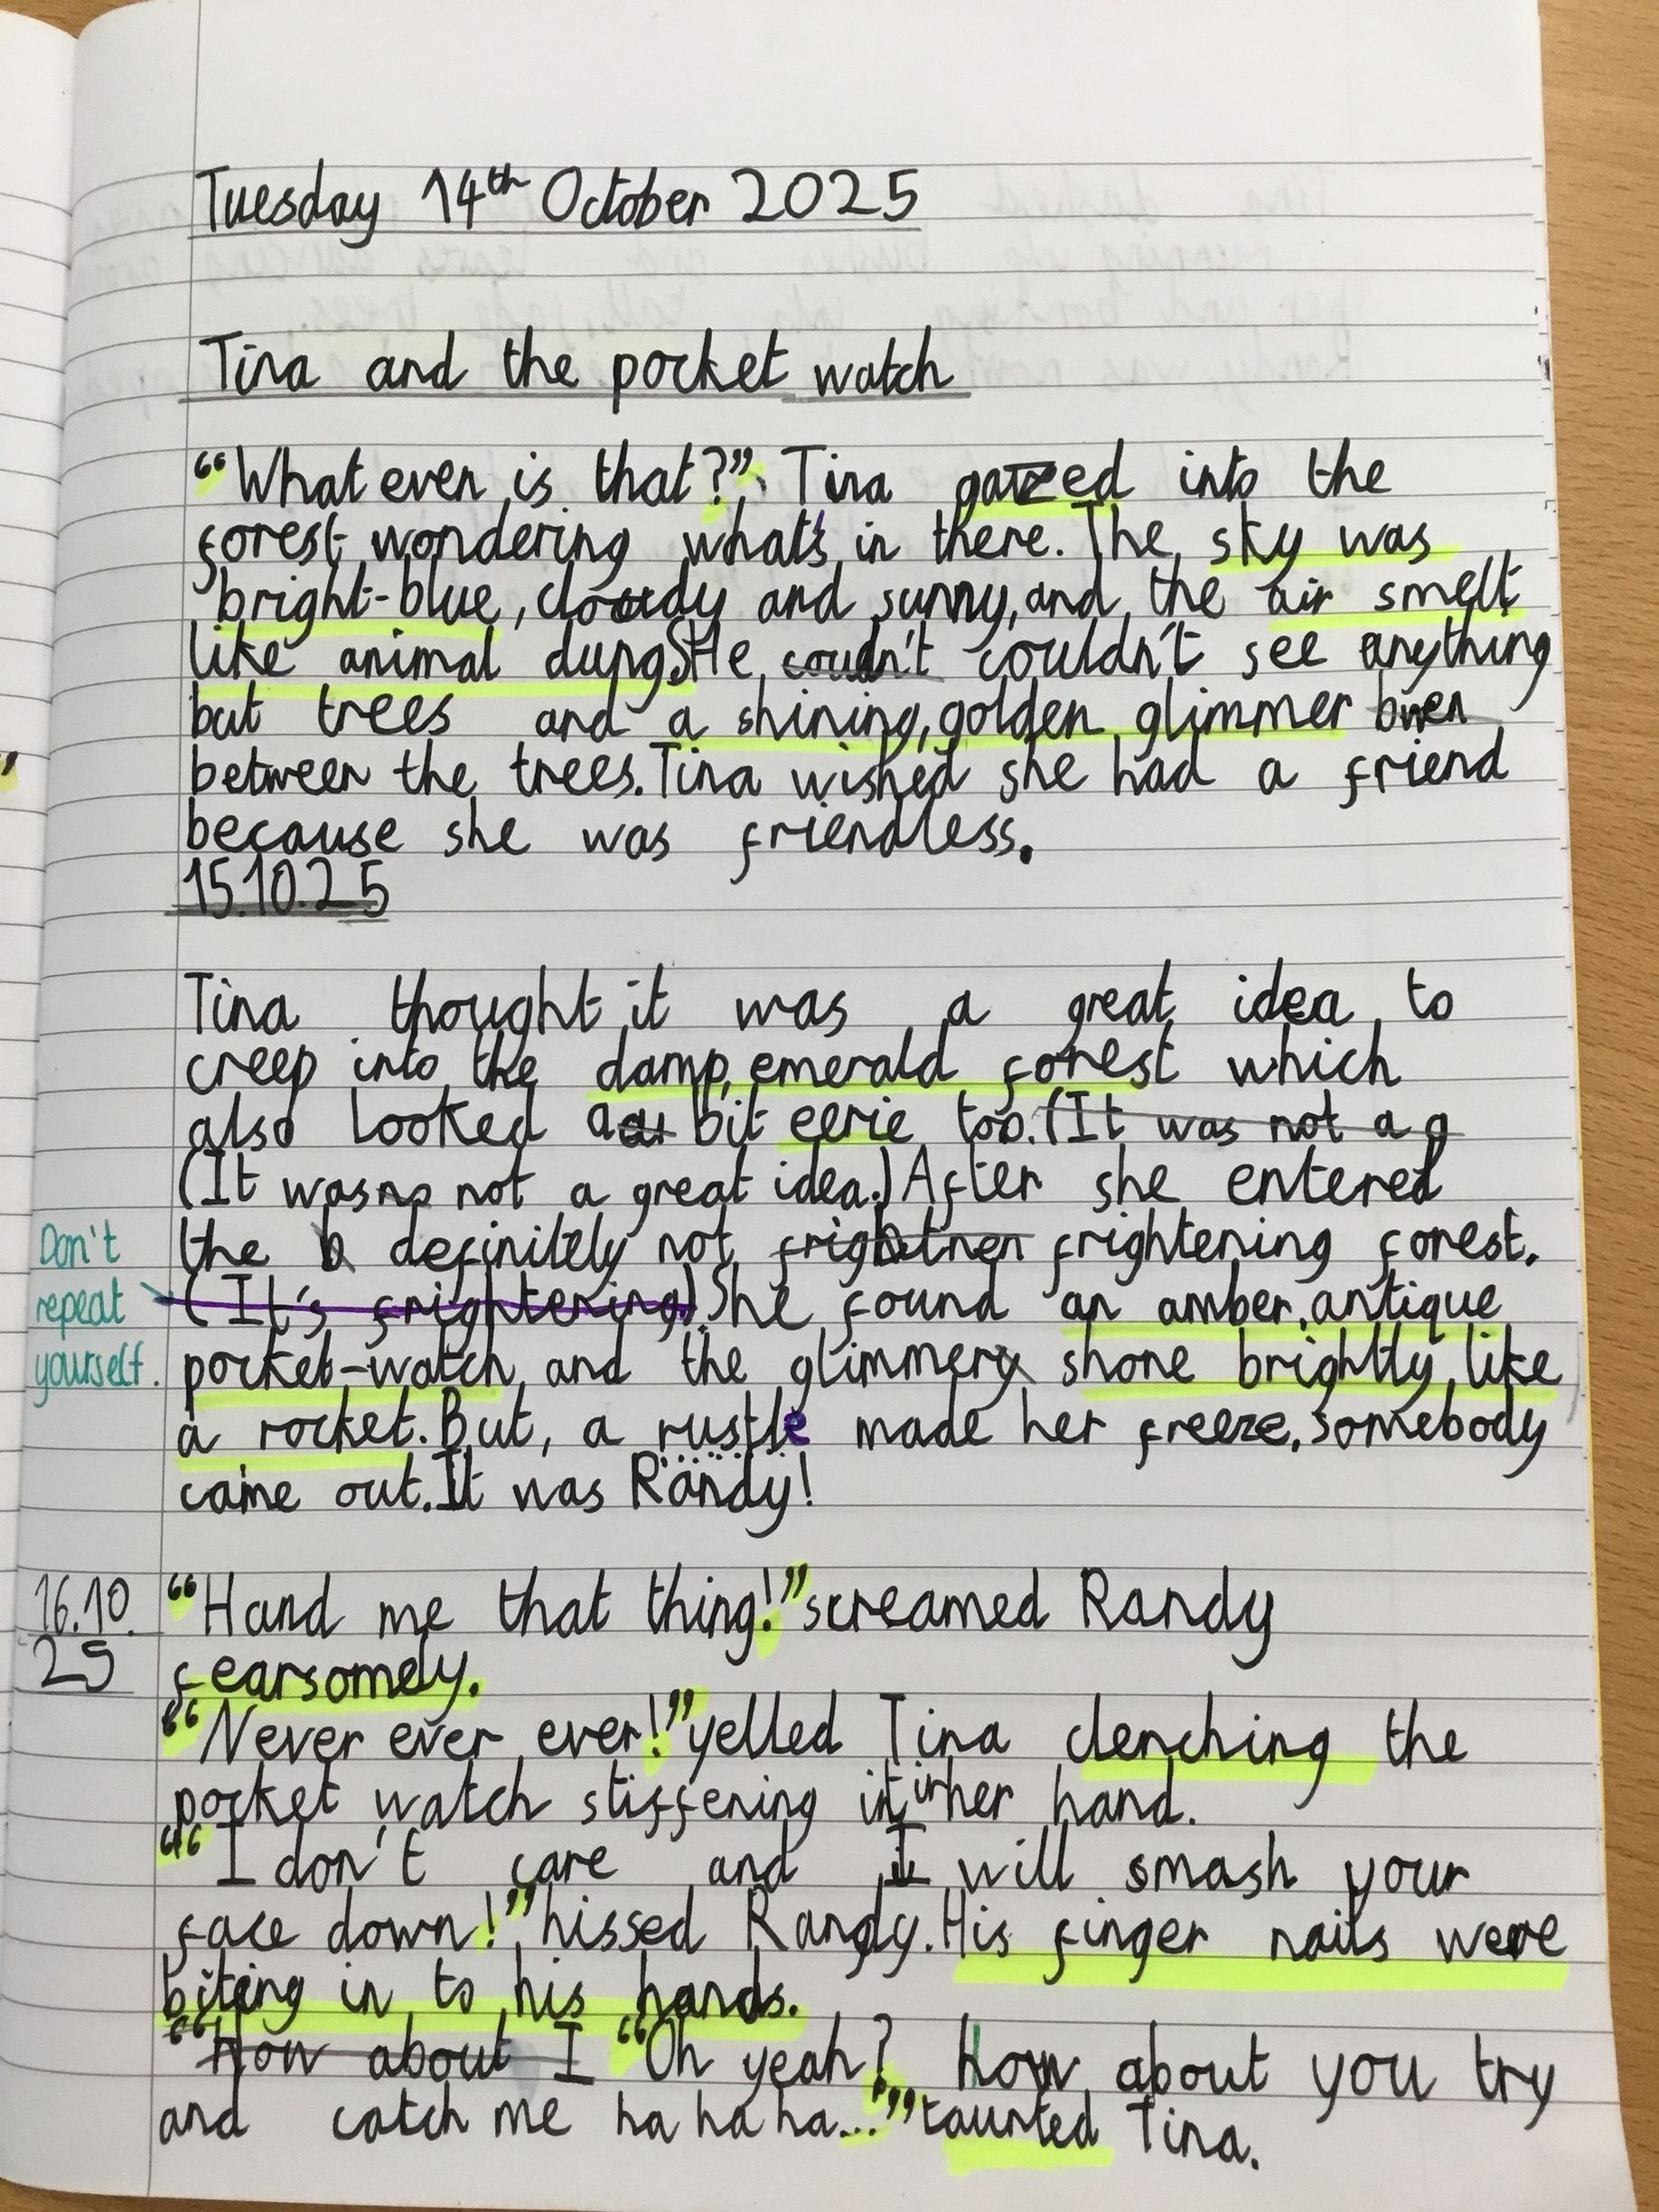 Tuesday 14th October 2025
Tina and the pocket watch
“What ever is that?” Tina gazed into the
forest wondering what's in there. The sky was
bright-blue, cloudy and sunny, and the air smelt
like animal dung. She coudn't couldn't see anything
but trees and a shining, golden glimmer
between the trees. Tina wished she had a friend
because she was friendless.
15.10.25
Tina thought it was a great idea to
creep into the damp, emerald forest which
also looked a bit eerie too. (It was not a g
(It was no not a great idea.) After she entered
the b definitely not frightnen frightening forest.
Don't
repeat
yourself.
(It's frightening). She found an amber, antique
pocket-watch and the glimmery shone brightly, like
a rocket. But, a rustle made her freeze, somebody
came out. It was Randy!
16.10.
25
“Hand me that thing!” screamed Randy
fearsomely.
“Never ever ever!” yelled Tina clenching the
pocket watch stiffening it in her hand.
“I don't care and I will smash your
face down!” hissed Randy. His finger nails were
biting in to his hands.
“How about I “Oh yeah? How about you try
and catch me ha ha ha...” taunted Tina.